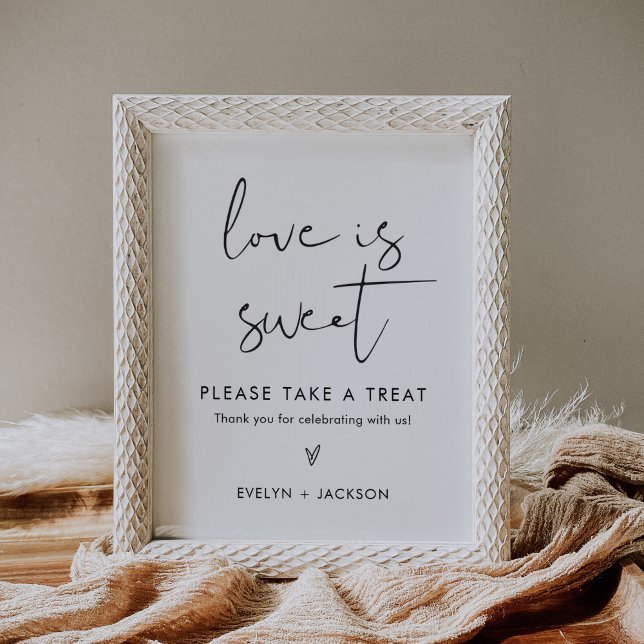 love is
sweet
PLEASE TAKE A TREAT
Thank you for celebrating with us!
EVELYN + JACKSON